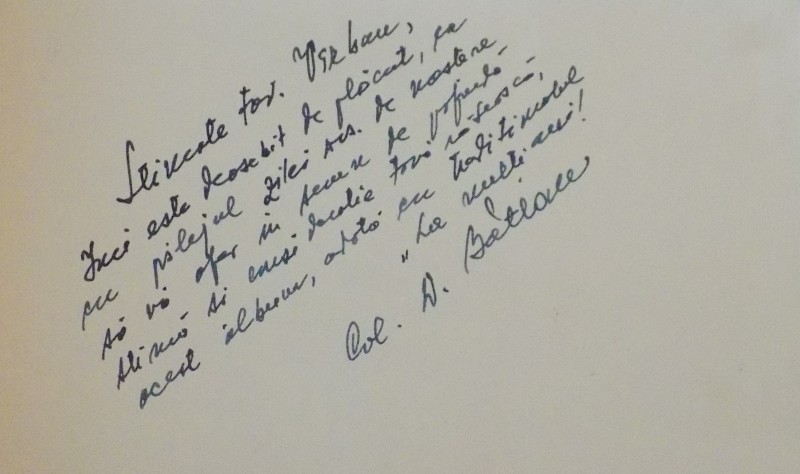 Stimate tov. Șerban,
Îmi este deosebit de plăcut, ca
cu prilejul zilei dvs. de naștere
să vă ofer în semn de profundă
stimă și considerație tovărășească,
acest album, odată cu tradiționalul
"La mulți ani!
Col. D. Bătlan